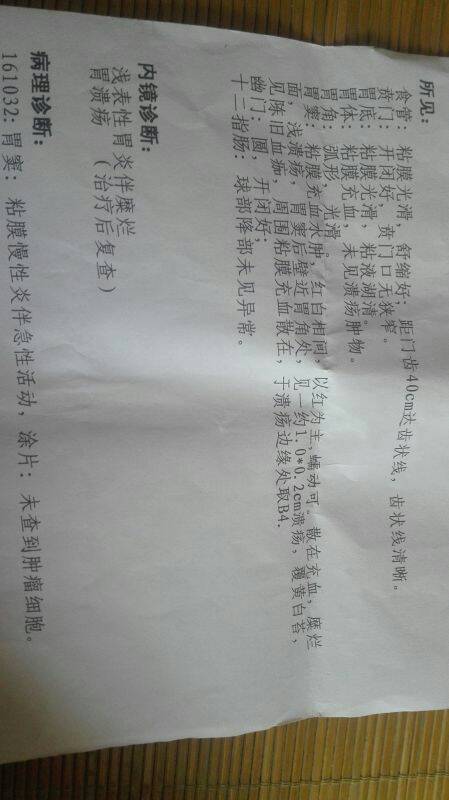 所见：
食管：粘膜光滑，舒缩好；距门齿40cm达齿状线，齿状线清晰。
贲门：开闭好，贲门口无狭窄。
胃底：粘膜光滑，粘液湖清。
胃体：粘膜充血，未见溃疡肿物。
胃角：弧形，光滑。
胃窦：粘膜充血水肿，红白相间，以红为主，蠕动可。散在充血，糜烂
面，浅溃疡，胃窦后壁近胃角处，见一约1.0*0.2cm溃疡，覆黄白苔，
见陈旧血痂，周围粘膜充血散在，于溃疡边缘处取B4.
幽门：圆，开闭好；
十二指肠：球部降部未见异常。
内镜诊断：
浅表性胃炎伴糜烂
胃溃疡（治疗后复查）
病理诊断：
161032：胃窦：粘膜慢性炎伴急性活动，涂片：未查到肿瘤细胞。